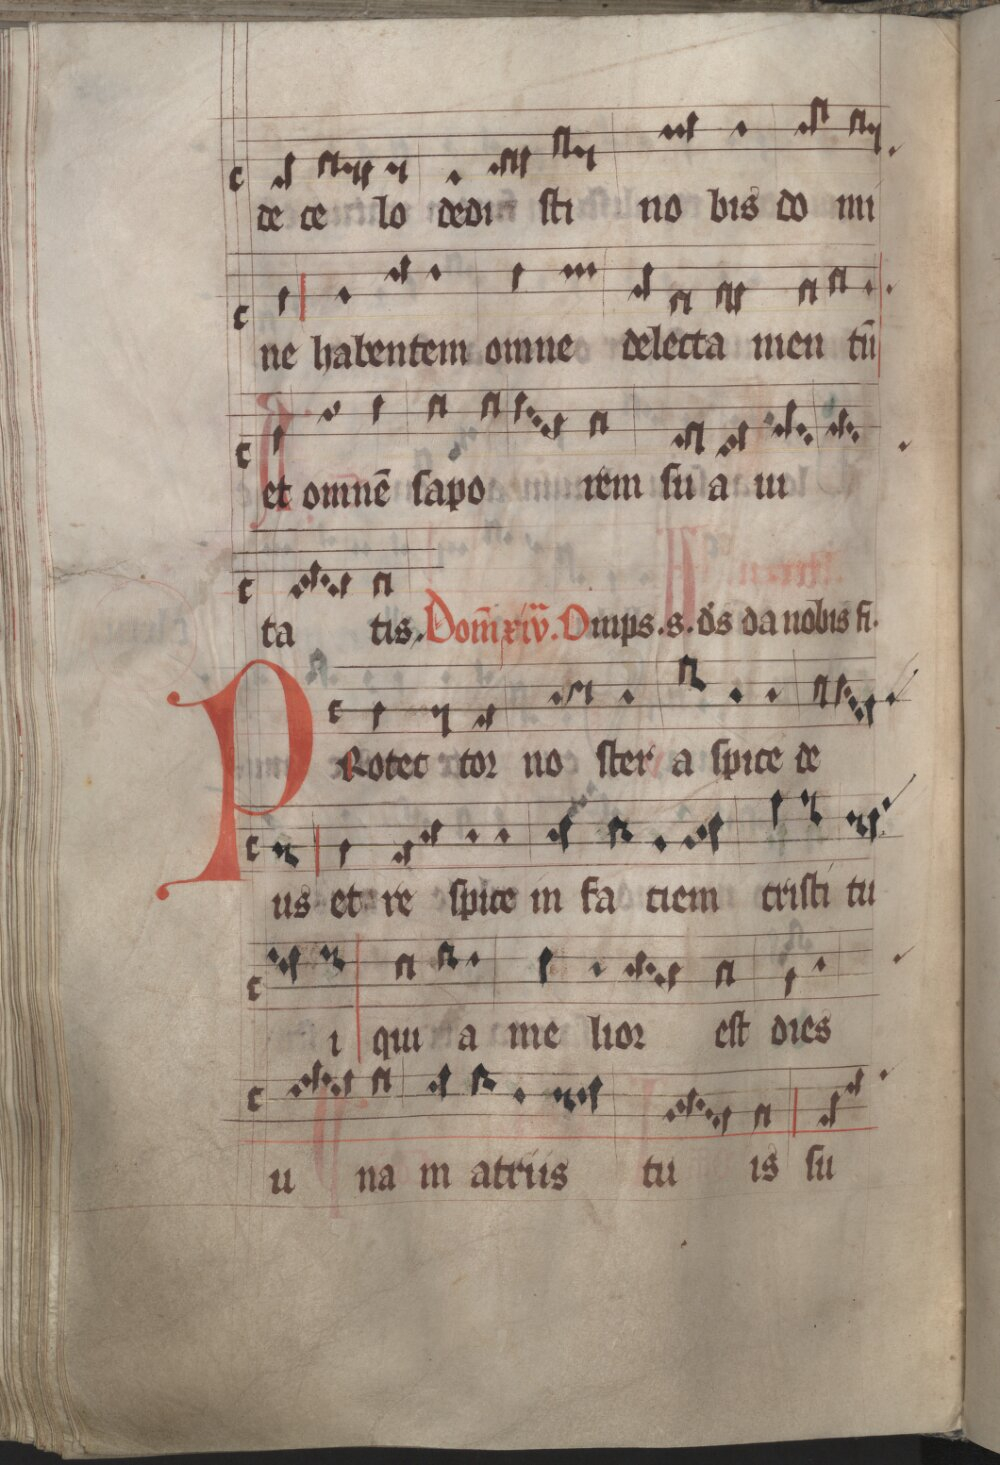 de ce lo dedi sti no bis do mi
ne habentem omne delecta men tū
et omnē sapo rem su a ui
ta tis. Dom̄ xiv. Omps. s. ds da nobis fi.
PRotec tor no ster a spice de
us et re spice in fa ciem cristi tu
i qui a me lior est dies
u na in atriis tu is su